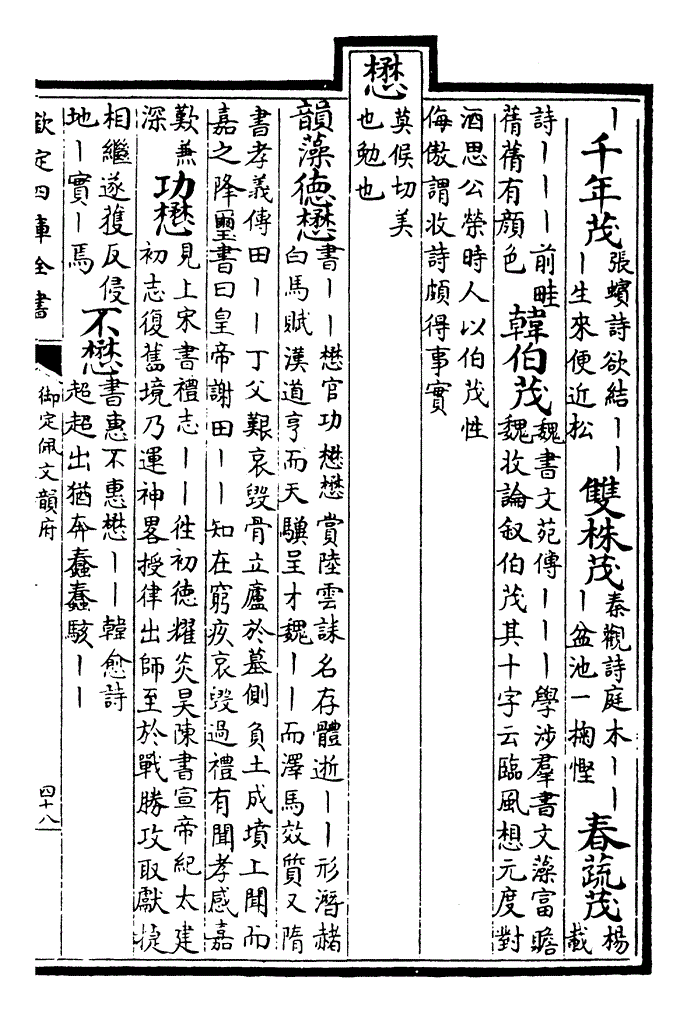 ｜千年茂張蠙詩欲結｜｜｜生來便近松雙株茂秦觀詩庭木｜｜｜盆池一掬慳春蔬茂楊載
詩｜｜｜前畦蒨蒨有顔色韓伯茂魏書文苑傳｜｜｜學涉羣書文藻富贍魏收論叙伯茂其十字云臨風想元度對
酒思公榮時人以伯茂性侮傲謂收詩頗得事實
懋莫候切美也勉也
韻藻德懋書｜｜懋官功懋懋賞陸雲誄名存體逝｜｜形潛赭白馬賦漢道亨而天驥呈才魏｜｜而澤馬效質又隋
書孝義傳田｜｜丁父艱哀毁骨立廬於墓側負土成墳上聞而嘉之降璽書曰皇帝謝田｜｜知在窮疚哀毁過禮有聞孝感嘉
歎兼深功懋見上宋書禮志｜｜徃初德耀炎昊陳書宣帝紀太建初志復舊境乃運神畧授律出師至於戰勝攻取獻捷
相繼遂獲反侵地｜實｜焉不懋書惠不惠懋｜｜韓愈詩超超出猶奔蠢蠢駭｜｜
欽定四庫全書
御定佩文韻府
四十八